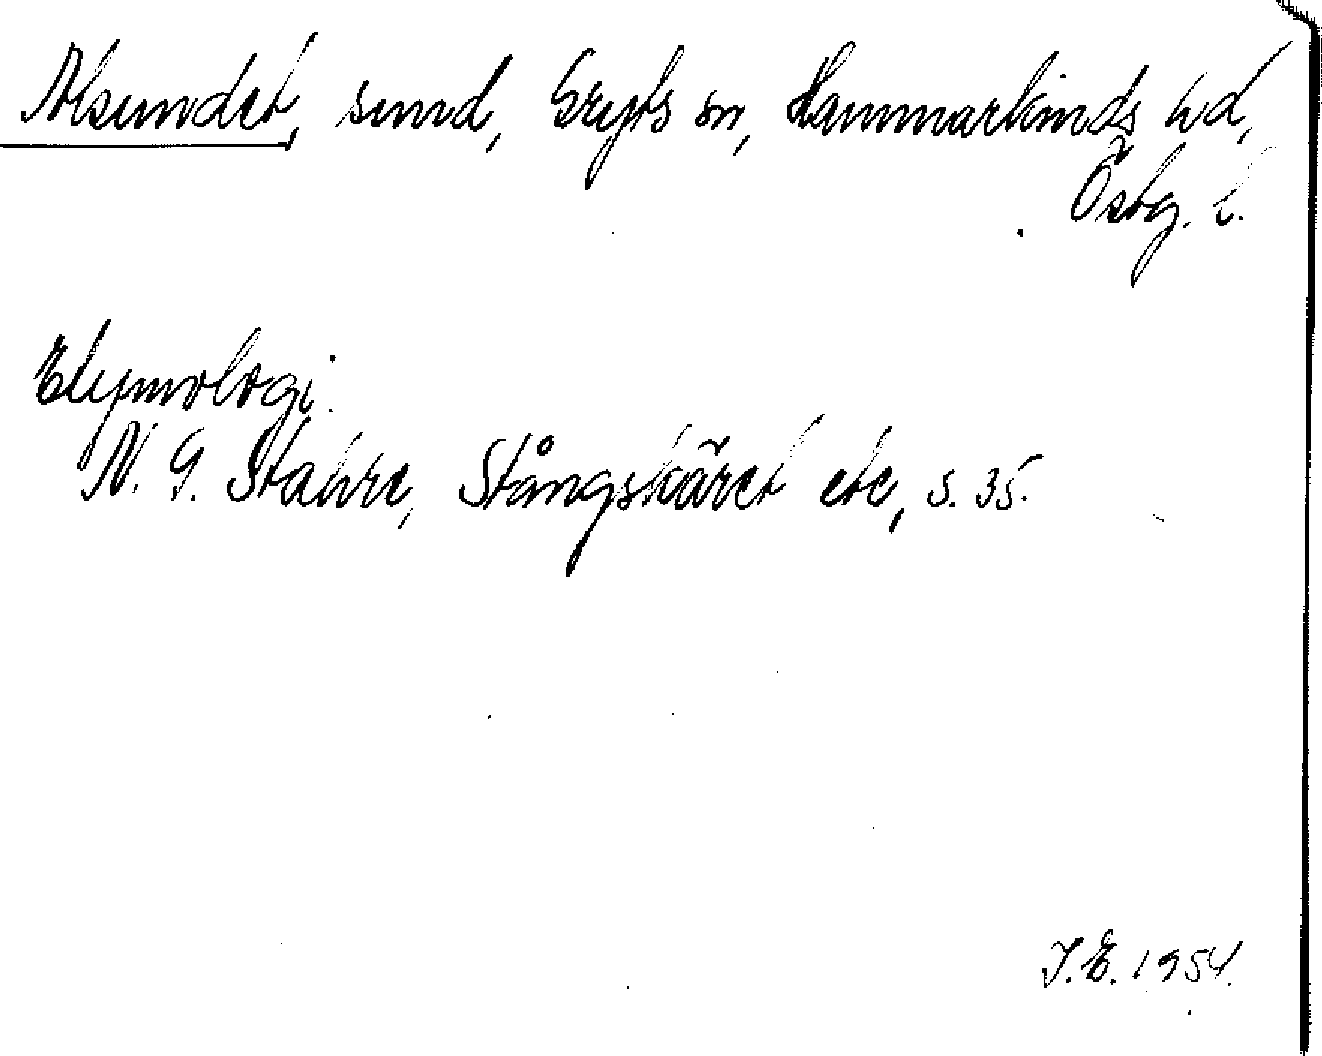 Alsundet, sund, Gryts sn, Hammarkinds hd,
Östg. l.
Etymologi.
N. G. Stahre, Stångskäret etc, s. 35.
J.E. 1954.